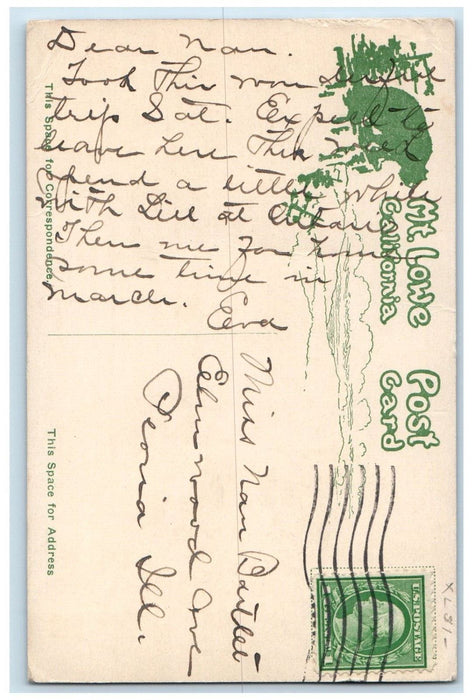 Dear Nan.
Took this wonderful
trip Sat. Expect to
leave here this week
spend a little while
with Lill at
Then me for home
some time in
March. Elva
This Space for Correspondence
Mt Lowe
California
Post
Card
Miss Nan Bartlett
Elmwood Ave
Peoria Ill.
This Space for Address
U.S. POSTAGE
XL81-